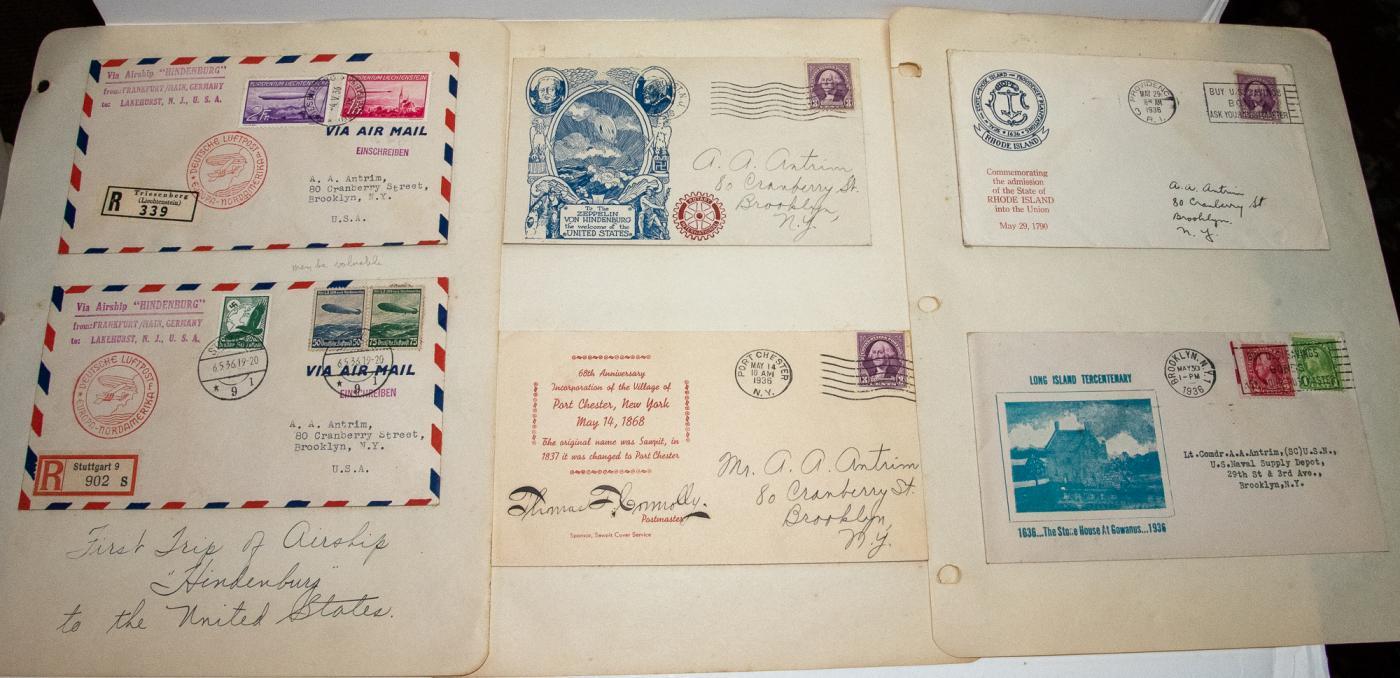 Via Airship "HINDENBURG"
from: FRANKFURT/MAIN, GERMANY
to: LAKEHURST, N. J., U. S. A.
FÜRSTENTUM LIECHTENSTEIN
FÜRSTENTUM LIECHTENSTEIN
VIA AIR MAIL
EINSCHREIBEN
DEUTSCHE LUFTPOST
EUROPA-NORDAMERIKA
R
Triesenberg
(Liechtenstein)
339
A. A. Antrim,
80 Cranberry Street,
Brooklyn, N.Y.
U.S.A.
may be valuable
Via Airship "HINDENBURG"
from: FRANKFURT/MAIN, GERMANY
to: LAKEHURST, N. J., U. S. A.
50 Deutsche Luftpost 50
75 Deutsche Luftpost 75
6.5.36.19-20
9 1
6.5.36.19-20
9 1
VIA AIR MAIL
EINSCHREIBEN
DEUTSCHE LUFTPOST
EUROPA-NORDAMERIKA
A. A. Antrim,
80 Cranberry Street,
Brooklyn, N.Y.
U.S.A.
R
Stuttgart 9
902 S
First Trip of Airship
"Hindenburg"
to the United States.
To The
ZEPPELIN
VON HINDENBURG
the welcome of the
UNITED STATES
ROTARY
INTERNATIONAL
3 3
A. A. Antrim
80 Cranberry St.
Brooklyn,
N.Y.
68th Anniversary
Incorporation of the Village of
Port Chester, New York
May 14, 1868
The original name was Sawpit, in
1837 it was changed to Port Chester
Thomas F. Connolly
Postmaster
Sponsor, Sawpit Cover Service
PORT CHESTER
MAY 14
10 AM
1936
N.Y.
3 3
Mr. A. A. Antrim
80 Cranberry St.
Brooklyn,
N.Y.
1636
RHODE ISLAND
Commemorating
the admission
of the State of
RHODE ISLAND
into the Union
May 29, 1790
PROVIDENCE
MAY 29
1936
R.I.
BUY U.S. SAVINGS
ASK YOUR POSTMASTER
A. A. Antrim
80 Cranberry St
Brooklyn.
N. Y.
LONG ISLAND TERCENTENARY
1636...The Stone House At Gowanus...1936
BROOKLYN, N.Y. 1
MAY 30
1-PM
1936
Lt. Comdr. A.A. Antrim, (SC) U.S.N.,
U.S. Naval Supply Depot,
29th St & 3rd Ave.,
Brooklyn, N.Y.